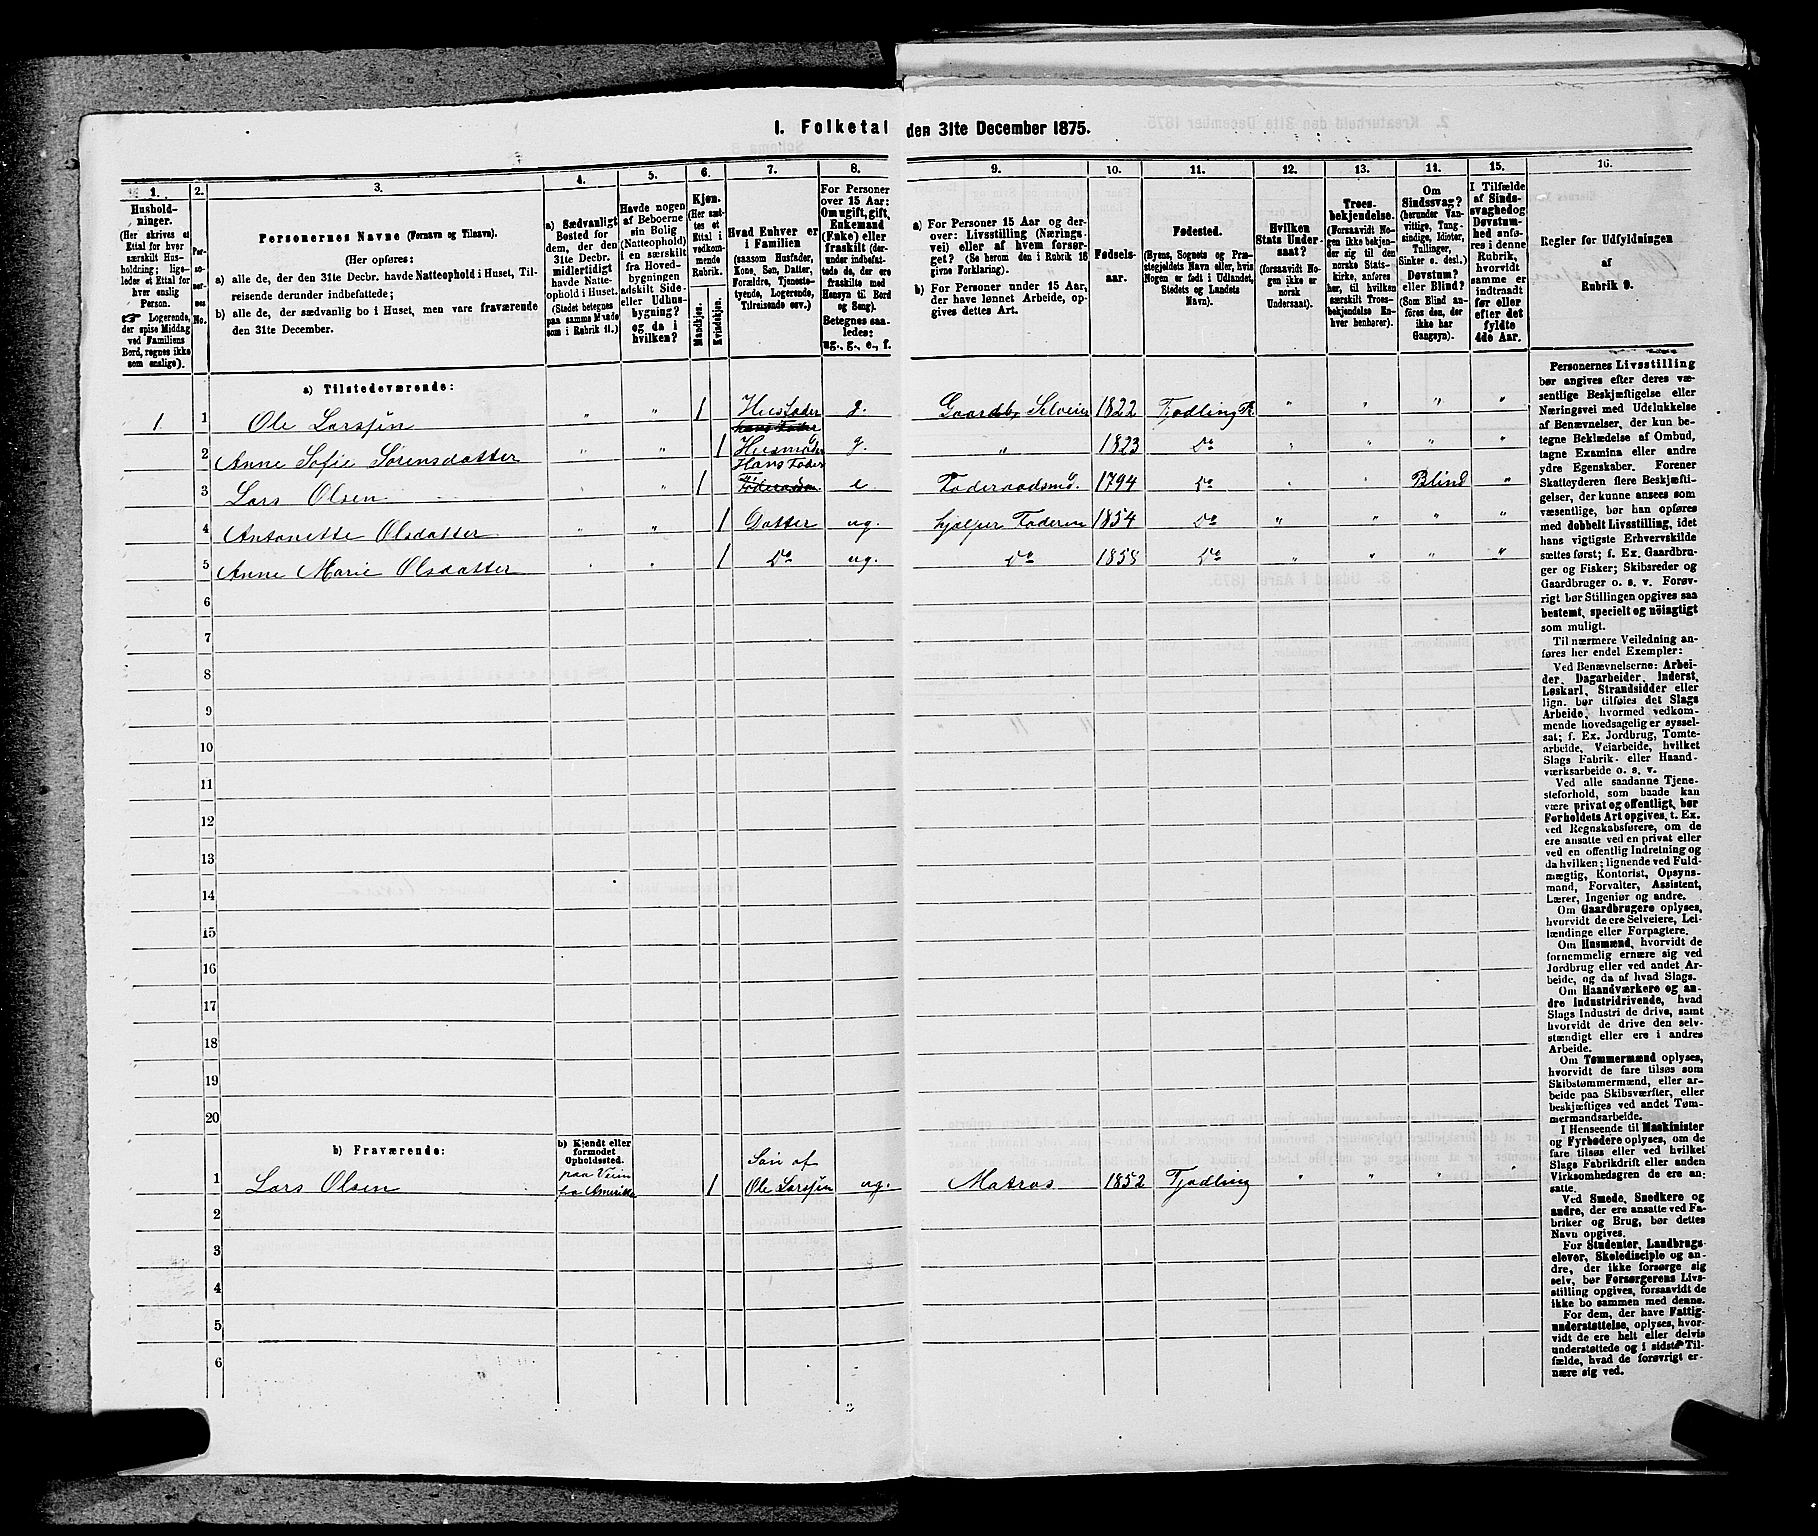 1. Folketal den 31te December 1875.
1. 2. 3. 4. 5. 6. 7. 8. 9. 10. 11. 12. 13. 14. 15. 16.
Husholdninger.
(Her skrives et
Ettal for hver
særskilt Husholdning;
ligeledes et Ettal for
hver enslig
Person.
☞ Logerende,
der spise Middag
ved Familiens
Bord, regnes ikke
som enslige).
Personernes No.
Personernes Navne (Fornavn og Tilnavn).
(Her opføres:
a) alle de, der den 31te Decbr. havde Natteophold i Huset, Tilreisende derunder indbefattede;
b) alle de, der sædvanlig bo i Huset, men vare fraværende
den 31te December.
a) Sædvanligt
Bosted for
dem, der den
31te Decbr.
midlertidigt
havde Natteophold
i Huset.
(Stedet betegnes
paa samme Maade
som i Rubrik 11.)
Havde nogen
af Beboerne
sin Bolig
(Natteophold)
i en særskilt
fra Hovedbygningen
adskilt Side-
eller Udhusbygning?
og da i
hvilken?
Kjøn.
(Her sættes
et
Ettal i
vedkommende
Rubrik.
Mandkjøn.
Kvindekjøn.
Hvad Enhver er
i Familien
(saasom Husfader,
Kone, Søn, Datter,
Forældre, Tjenestetyende,
Logerende,
Tilreisende osv.)
For Personer
over 15 Aar:
Om ugift, gift,
Enkemand
(Enke) eller
fraskilt (derunder
indbefattede
de, der ere
fraskilte med
Hensyn til Bord
og Seng).
Betegnes saaledes:
ug., g., e., f.
a) For Personer 15 Aar og derover:
Livsstilling (Næringsvei)
eller af hvem forsørget?
(Se herom den i Rubrik 16
givne Forklaring).
b) For Personer under 15 Aar,
der have lønnet Arbeide, opgives
dettes Art.
Fødselsaar.
Fødested.
(Byens, Sognets og Præstegjeldets
Navn eller, hvis
Nogen er født i Udlandet,
Stedets og Landets
Navn).
Hvilken
Stats Undersaat?
(forsaavidt Nogen
ikke er
norsk
Undersaat).
Troesbekjendelse.
(Forsaavidt Nogen
ikke bekjender
sig til den
norske Statskirke,
anføres
her, til hvilken
særskilt Troesbekjendelse
Enhver
henhører).
Om
Sindssvag?
(herunder Vanvittige,
Tungsindige,
Idioter,
Tullinger,
Sinker o. desl.)
Døvstum?
eller Blind?
(Som Blind anføres
den, der
ikke har
Gangsyn).
I Tilfælde
af Sindssvaghed
og
Døvstumhed
anføres
i denne
Rubrik,
hvorvidt
samme er
indtraadt
før eller
efter det
fyldte
4de Aar.
Regler for Udfyldningen
af
Rubrik 9.
a) Tilstedeværende:
1 1 Ole Larssen " " 1 Husfader g. Gaardbr Selveier 1822 Tjødling P. " " " "
2 Anne Sofie Sørensdatter " " 1 Husmoder g. " 1823 Do " " " "
3 Lars Olsen " " 1 Hans Fader e Føderaadsmd. 1794 Do " " Blind "
4 Antonette Olsdatter " " 1 Datter ug. hjelper Faderen 1854 Do " " " "
5 Anne Marie Olsdatter " " 1 Do ug. Do 1858 Do " " " "
6
7
8
9
10
11
12
13
14
15
16
17
18
19
20
b) Fraværende:
b) Kjendt eller
formodet
Opholdssted.
1 Lars Olsen paa Veien fra Amerika 1 Søn af Ole Larssen ug. Matros 1852 Tjødling " " " "
2
3
4
5
6
Personernes Livsstilling
bør angives efter deres væsentlige
Beskjæftigelse eller
Næringsvei med Udelukkelse
af Benævnelser, der kun betegne
Beklædelse af Ombud,
tagne Examina eller andre
ydre Egenskaber. Forener
Skatteyderen flere Beskjæftigelser,
der kunne ansees som
væsentlige, bør han opføres
med dobbelt Livsstilling, idet
hans vigtigste Erhvervskilde
sættes først; f. Ex. Gaardbruger
og Fisker; Skibsreder og
Gaardbruger o. s. v. Forøvrigt
bør Stillingen opgives saa
bestemt, specielt og nøiagtigt
som muligt.
Til nærmere Veiledning anføres
her endel Exempler:
Ved Benævnelserne: Arbeider,
Dagarbeider, Inderst,
Løskarl, Strandsidder eller
lign. bør tilføies det Slags
Arbeide, hvormed vedkommende
hovedsagelig er sysselsat;
f. Ex. Jordbrug, Tomtearbeide,
Veiarbeide, hvilket
Slags Fabrik- eller Haandværksarbeide
o. s. v.
Ved alle saadanne Tjenesteforhold,
som baade kan
være privat og offentligt, bør
Forholdets Art opgives, t. Ex.
ved Regnskabsførere, om de
ere ansatte ved en privat eller
ved en offentlig Indretning og
da hvilken; lignende ved Fuldmægtig,
Kontorist, Opsynsmand,
Forvalter, Assistent,
Lærer, Ingeniør og andre.
Om Gaardbrugere oplyses,
hvorvidt de ere Selveiere, Leilændinge
eller Forpagtere.
Om Husmænd, hvorvidt de
fornemmelig ernære sig ved
Jordbrug eller ved andet Arbeide,
og da af hvad Slags.
Om Haandværkere og andre
Industridrivende, hvad
Slags Industri de drive, samt
hvorvidt de drive den selvstændigt
eller ere i andres
Arbeide.
Om Tømmermænd oplyses,
hvorvidt de fare tilsøs som
Skibstømmermænd, eller arbeide
paa Skibsværfter, eller
beskjæftiges ved andet Tømmermandsarbeide.
I Henseende til Maskinister
og Fyrbødere oplyses, om de
fare tilsøs eller ved hvilket
Slags Fabrikdrift eller anden
Virksomhedsgren de ere ansatte.
Ved Smede, Snedkere og
andre, der ere ansatte ved Fabriker
og Brug, bør dettes
Navn opgives.
For Studenter, Landbrugselever,
Skoledisciple og andre,
der ikke forsørge sig
selv, bør Forsørgerens Livsstilling
opgives, forsaavidt de
ikke bo sammen med denne.
For dem, der have Fattigunderstøttelse,
oplyses, hvorvidt
de ere helt eller delvis
understøttede og i sidste Tilfælde,
hvad de forøvrigt ernære
sig ved.